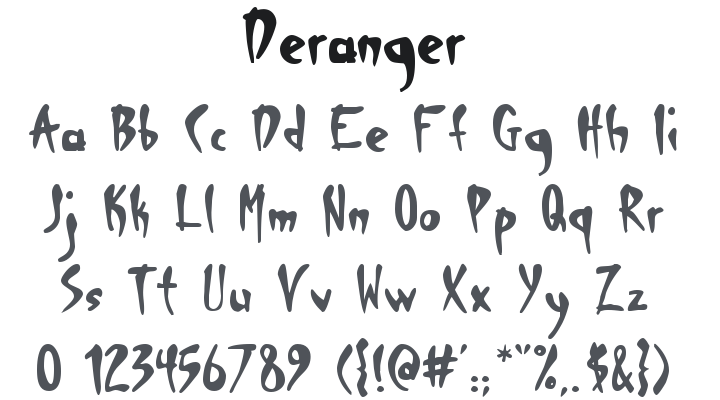 Deranger
Aa Bb Cc Dd Ee Ff Gg Hh Ii
Jj Kk Ll Mm Nn Oo Pp Qq Rr
Ss Tt Uu Vv Ww Xx Yy Zz
0 123456789 ({!@#'.;*"%,.$&})